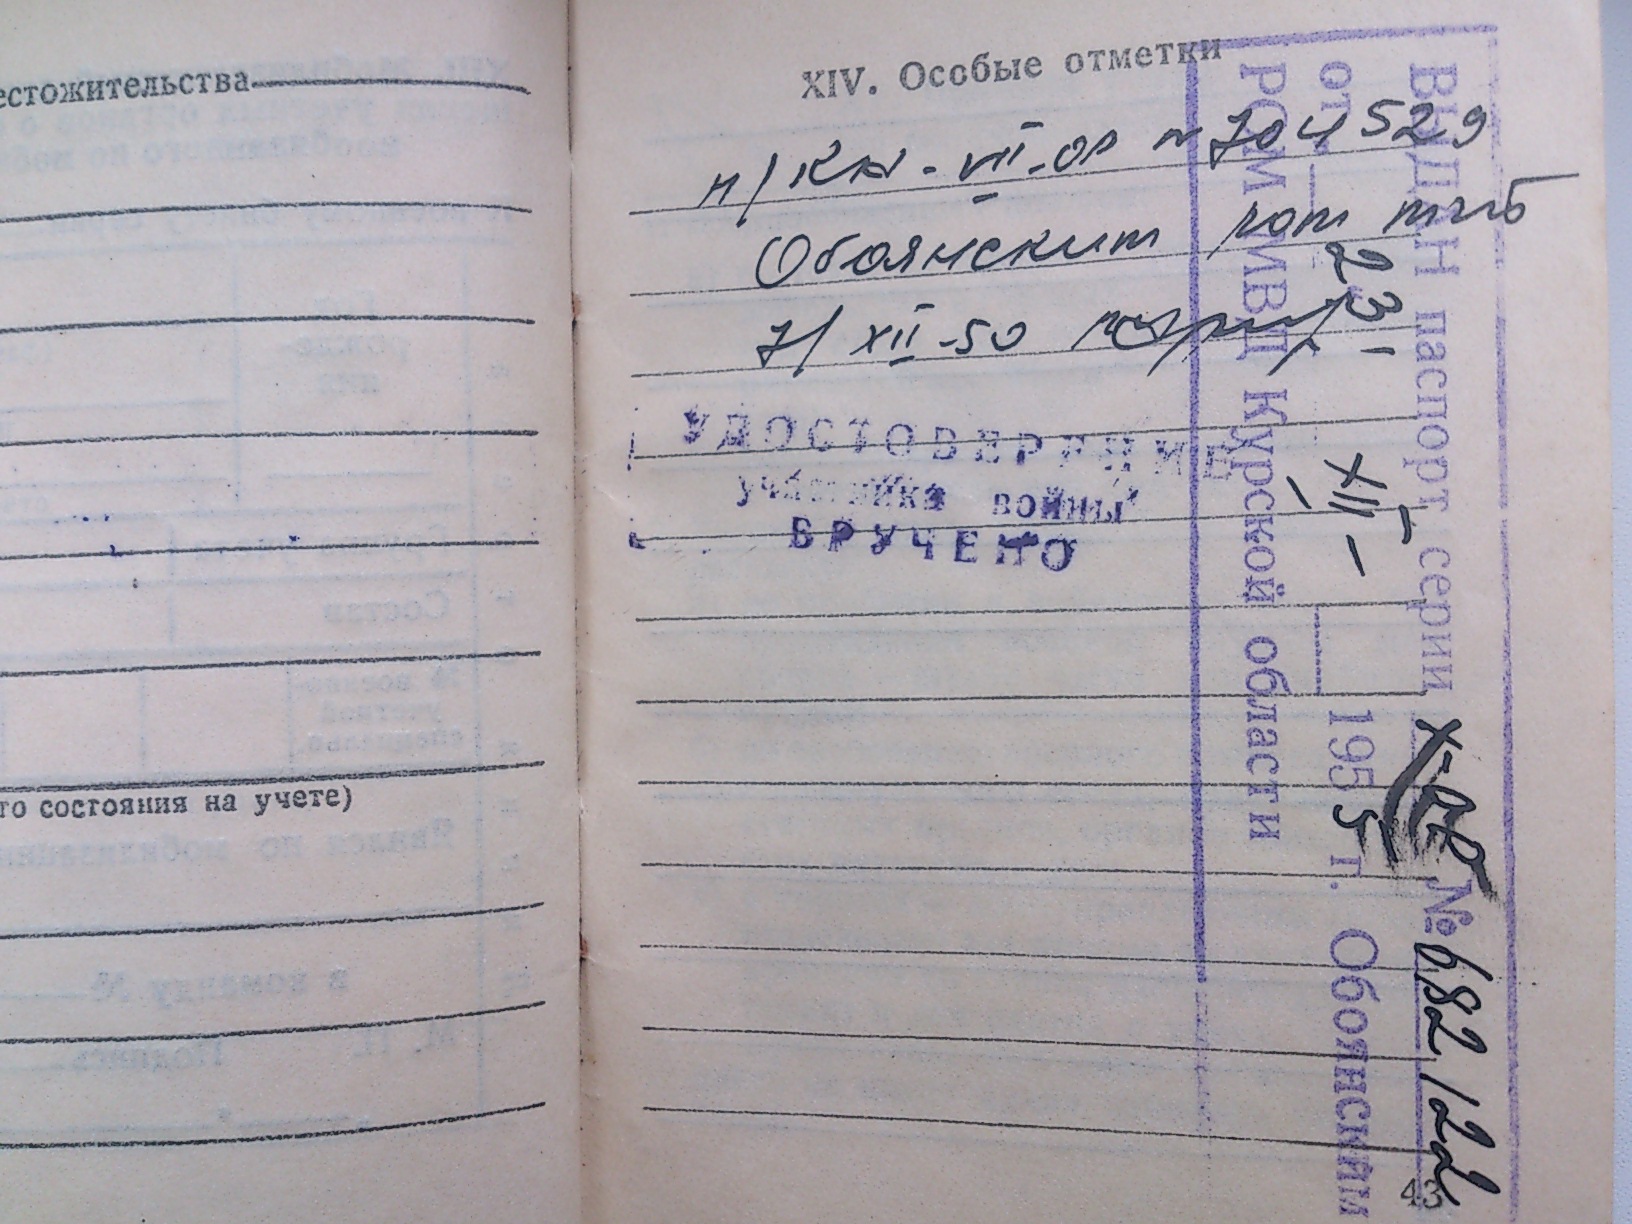 естожительства
то состояния на учете)
XIV. Особые отметки
п/ КН-VII-ОЯ № 704529
Обоянским
7/XII-50
УДОСТОВЕРЕНИЕ
участника войны
ВРУЧЕНО
ВЫДАН паспорт серии № 682122
от 23 XII 1955 г. Обоянским
РОМ МВД Курской области
43